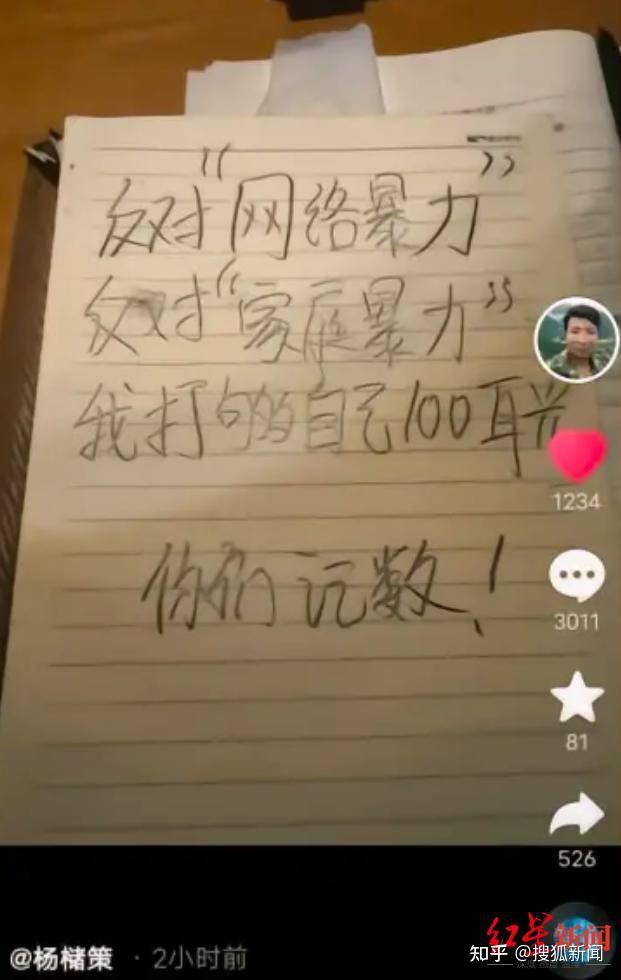 反对“网络暴力”
反对“家庭暴力”
我打够自己100耳光
你们记数！
1234
3011
81
526
@杨槠策 · 2小时前
红星新闻
知乎 @搜狐新闻